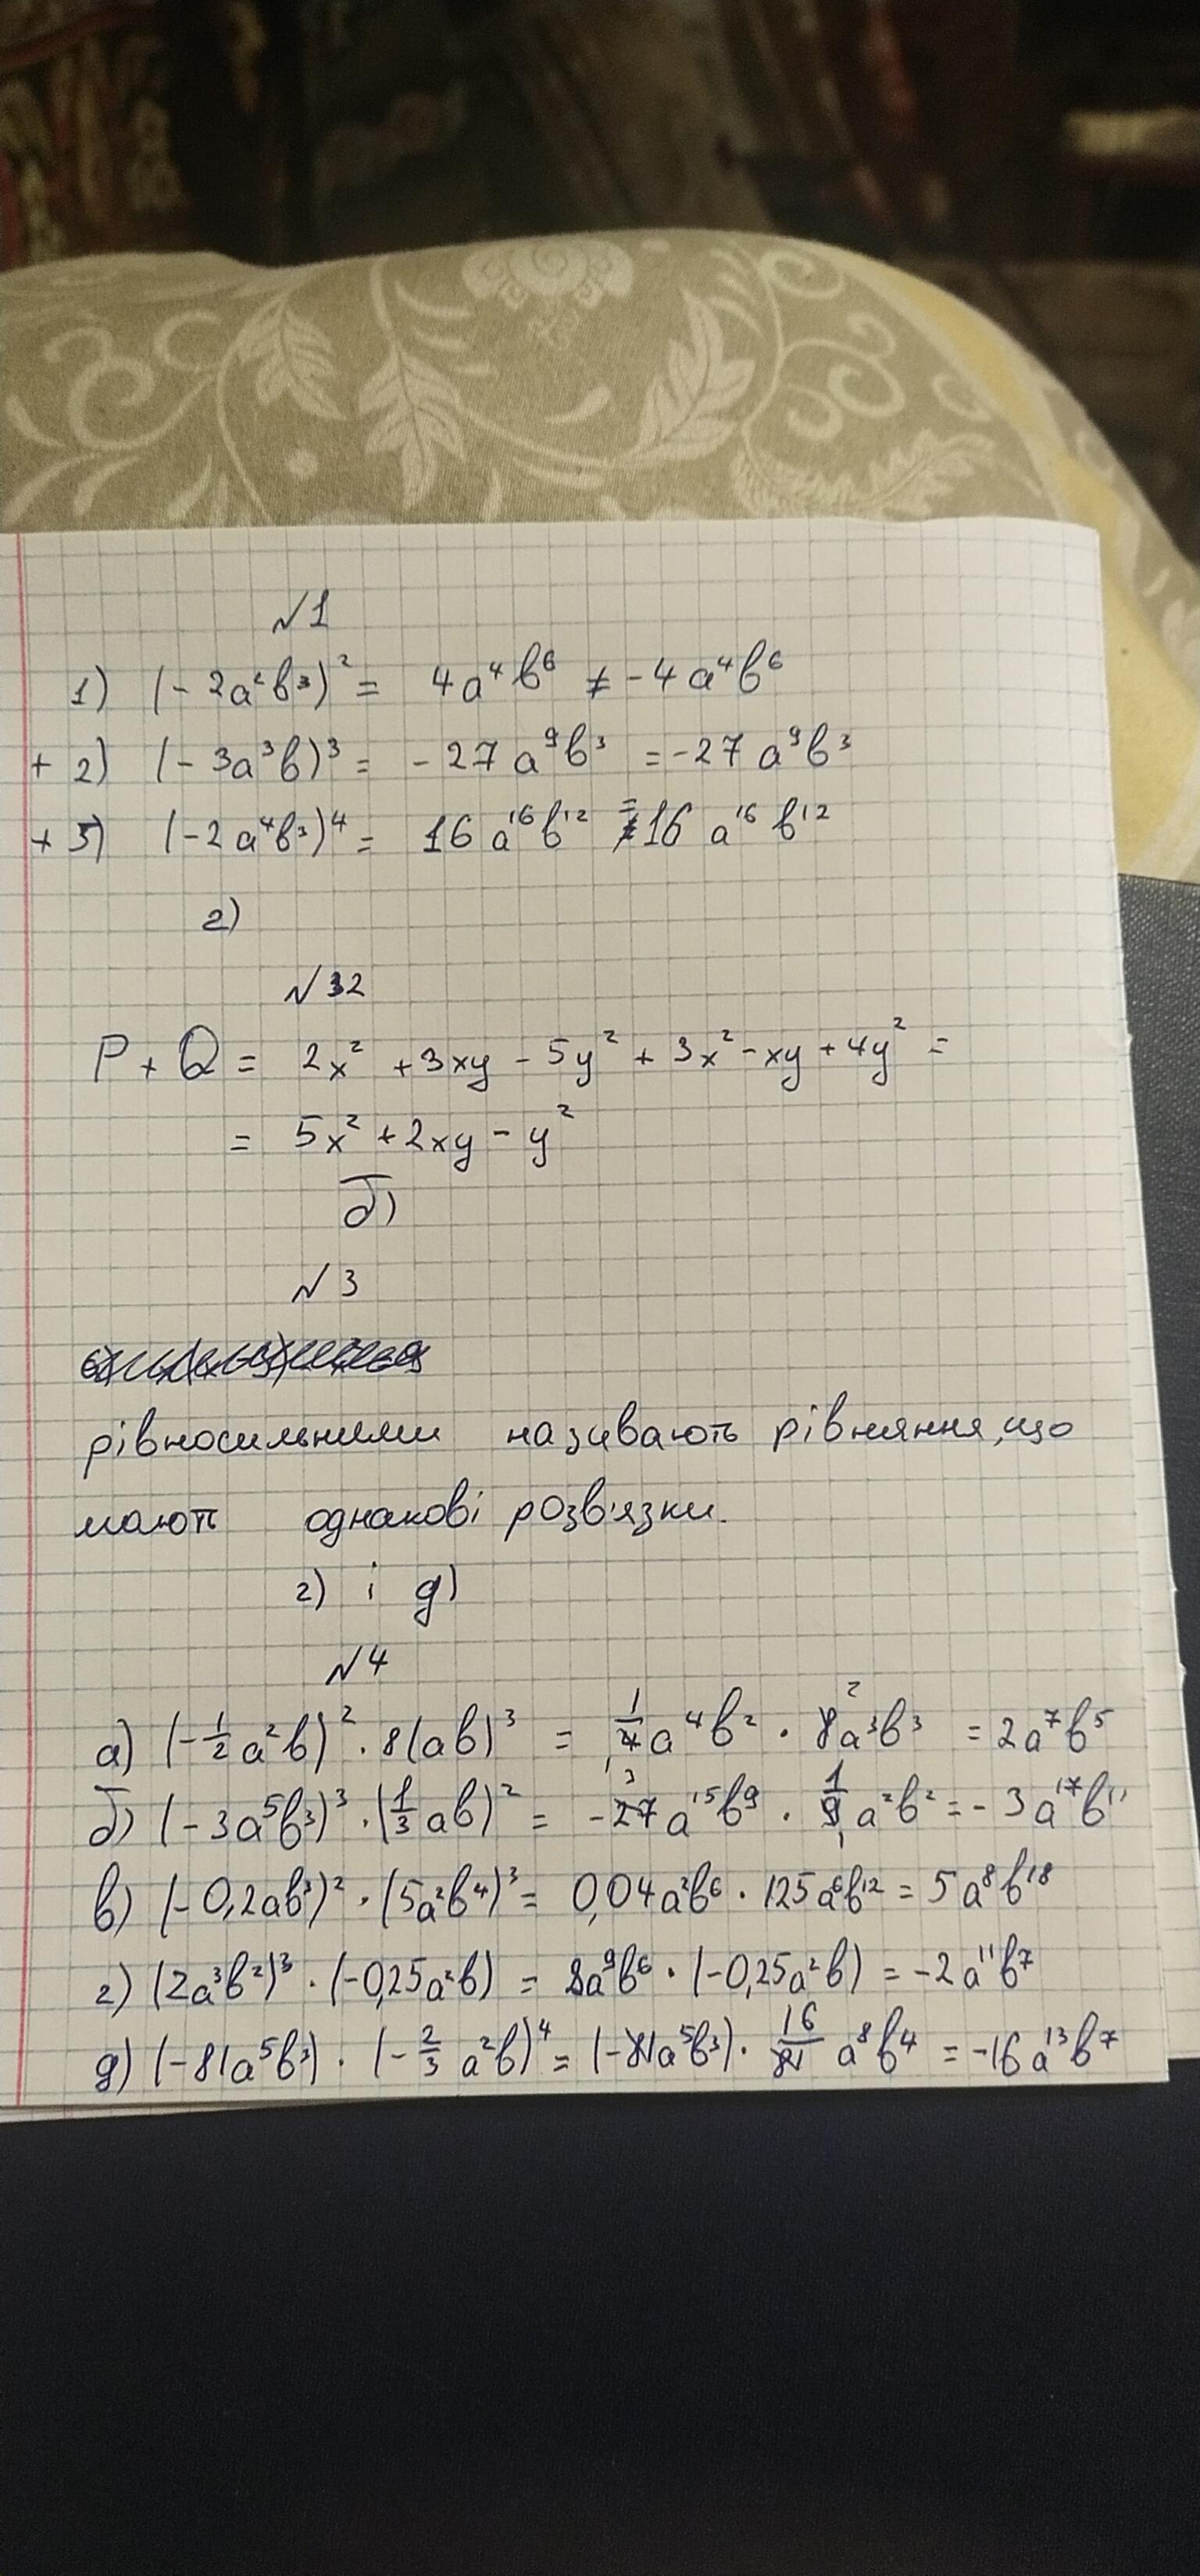 №1
1) (-2a²b³)² = 4a⁴b⁶ ≠ -4a⁴b⁶
+ 2) (-3a³b)³ = -27a⁹b³ = -27a⁹b³
+ 3) (-2a⁴b³)⁴ = 16a¹⁶b¹² = 16a¹⁶b¹²
г)
№2
P + Q = 2x² + 3xy - 5y² + 3x² - xy + 4y² =
= 5x² + 2xy - y²
б)
№3
рівносильними називають рівняння, що
мають однакові розв'язки.
г) і д)
№4
а) (-1/2 a²b)² · 8(ab)³ = 1/4 a⁴b² · 8a³b³ = 2a⁷b⁵
б) (-3a⁵b³)³ · (1/3 ab)² = -27a¹⁵b⁹ · 1/9 a²b² = -3a¹⁷b¹¹
в) (-0,2ab³)² · (5a²b⁴)³ = 0,04a²b⁶ · 125a⁶b¹² = 5a⁸b¹⁸
г) (2a³b²)³ · (-0,25a²b) = 8a⁹b⁶ · (-0,25a²b) = -2a¹¹b⁷
д) (-81a⁵b³) · (-2/3 a²b)⁴ = (-81a⁵b³) · 16/81 a⁸b⁴ = -16a¹³b⁷